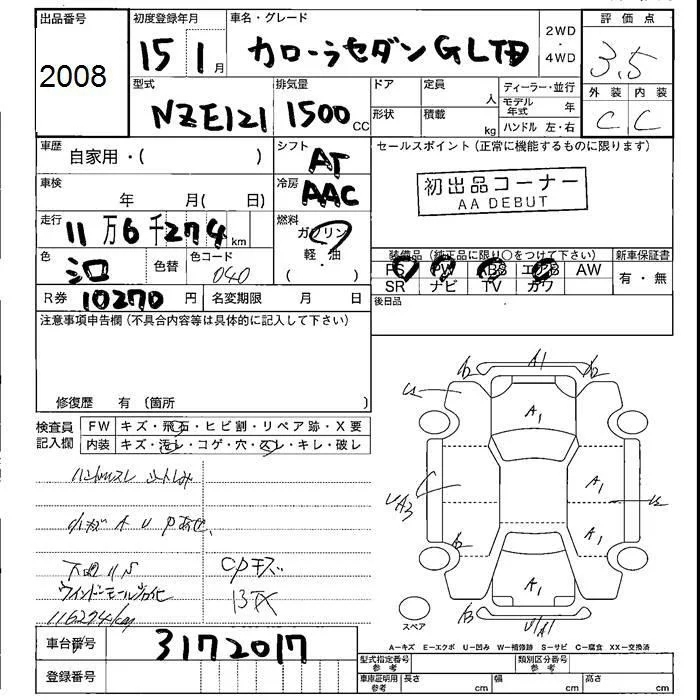 出品番号
2008
初度登録年月
15 1 月
車名・グレード
カローラセダン G LTD
2WD
・
4WD
評価点
3.5
外装 内装
C C
型式
NZE121
排気量
1500 CC
ドア
定員
人
形状
積載
kg
ディーラー・並行
モデル年式 年
ハンドル 左・右
車歴
自家用・( )
シフト
AT
セールスポイント(正常に機能するものに限ります)
初出品コーナー
AA DEBUT
車検
年 月( 日)
冷房
AAC
走行
11万6千274 km
燃料
ガソリン
軽・油
・( )
色
色替
色コード
040
装備品(純正品に限り○をつけて下さい)
新車保証書
PS PW ABS エアB AW
SR ナビ TV カワ
有・無
R券 10270 円
名変期限 月 日
後日品
注意事項申告欄(不具合内容等は具体的に記入して下さい)
修復歴 有(箇所 )
検査員
記入欄
FW キズ・飛石・ヒビ割・リペア跡・X要
内装 キズ・汚レ・コゲ・穴・スレ・キレ・破レ
ハンドルスレ
小キズ A U
下廻りS
CPキズ
ウインドーモール劣化
116274km
A1
A2
A2
A1
U2
UA3
A1
A1
U2
A2
A1
A3
U/A1
スペア
A-キズ E-エクボ U-凹み W-補修跡 S-サビ C-腐食 XX-交換済
車台番号
3172017
登録番号
型式指定番号
参考
類別区分番号
参考
車庫証明用
参考
長さ cm
幅 cm
高さ cm